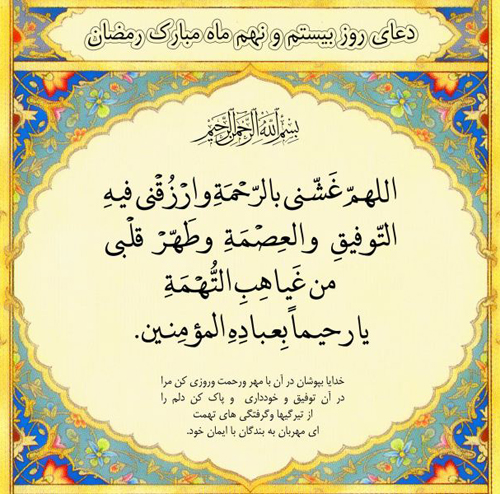 دعای روز بیستم و نهم ماه مبارک رمضان
بسم الله الرحمن الرحیم
اللهمّ غَشّنی بالرّحْمَةِ وارْزُقْنی فیهِ
التّوفیقِ والعِصْمَةِ وطَهّرْ قلْبی
من غَیاهِبِ التُّهْمَةِ
یا رحیماً بِعبادِهِ المؤمِنین.
خدایا بپوشان در آن با مهر ورحمت وروزی کن مرا
در آن توفیق و خودداری و پاک کن دلم را
از تیرگیها وگرفتگی های تهمت
ای مهربان به بندگان با ایمان خود.